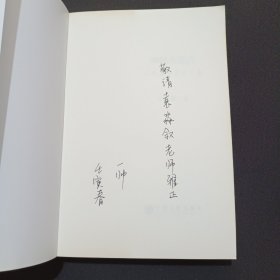 敬请袁淼叙老师雅正
一帅
壬寅春